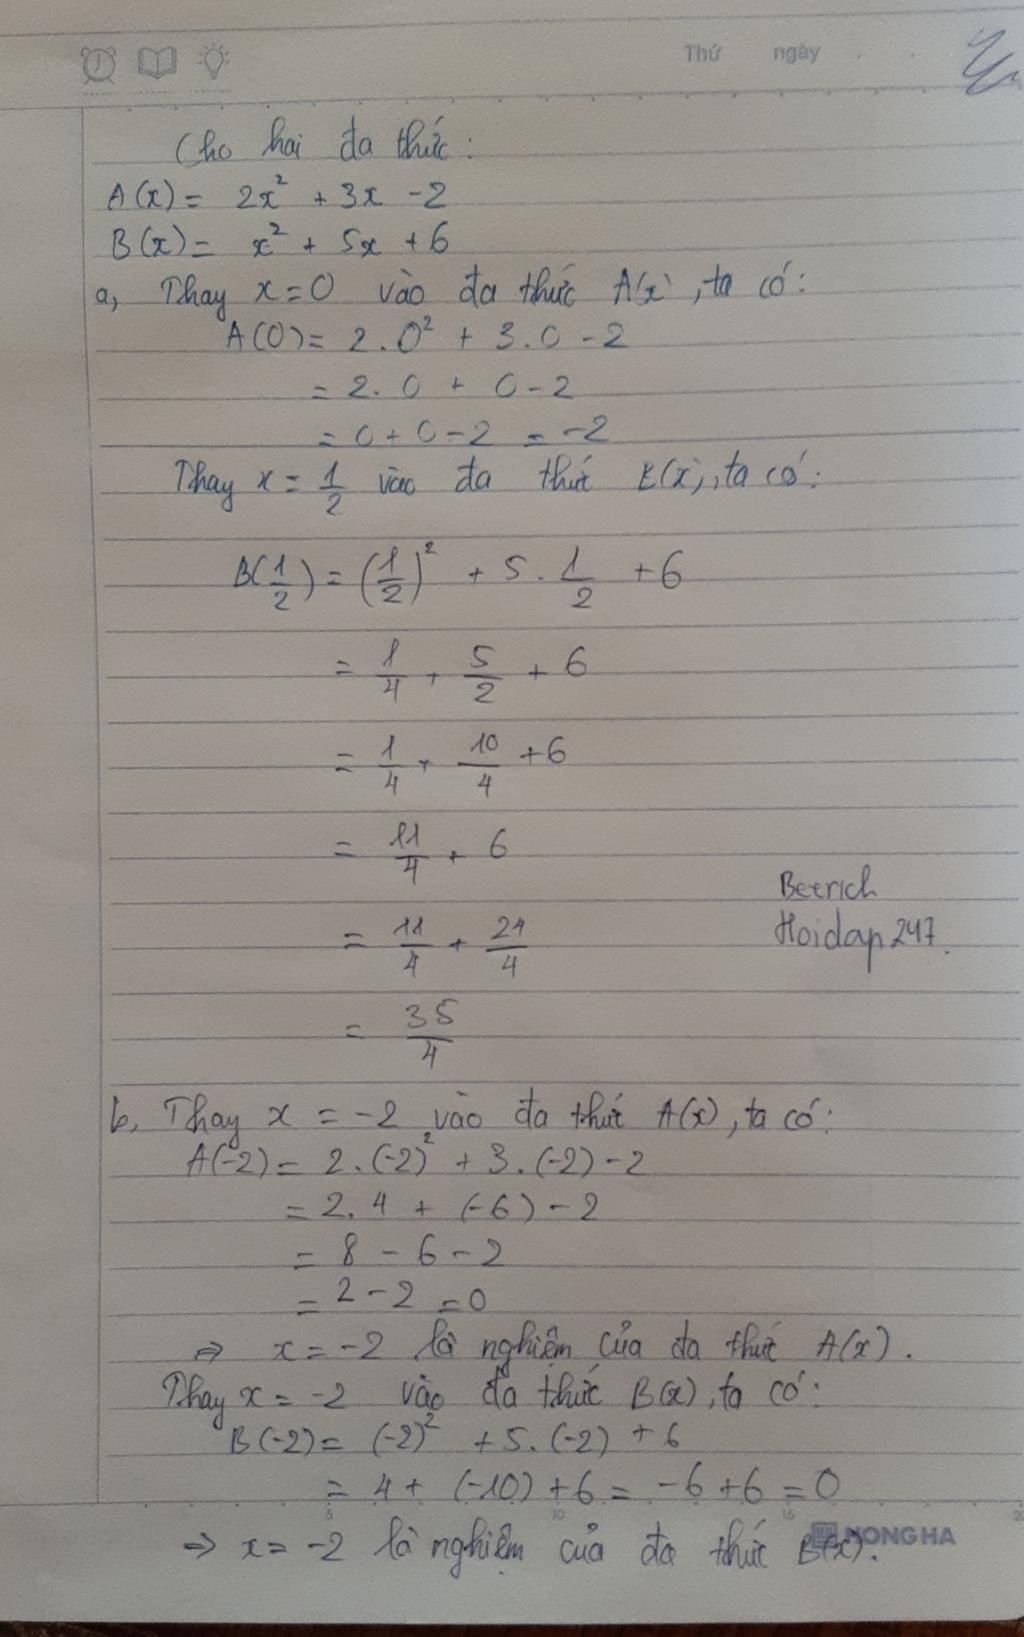 Thứ ngày
Cho hai đa thức:
A(x) = 2x² + 3x - 2
B(x) = x² + 5x + 6
a, Thay x = 0 vào đa thức A(x), ta có:
A(0) = 2.0² + 3.0 - 2
= 2.0 + 0 - 2
= 0 + 0 - 2 = -2
Thay x = 1/2 vào đa thức B(x), ta có:
B(1/2) = (1/2)² + 5 . 1/2 + 6
= 1/4 + 5/2 + 6
= 1/4 + 10/4 + 6
= 11/4 + 6
= 11/4 + 24/4
= 35/4
Beerich
Hoidap247.
b, Thay x = -2 vào đa thức A(x), ta có:
A(-2) = 2.(-2)² + 3.(-2) - 2
= 2.4 + (-6) - 2
= 8 - 6 - 2
= 2 - 2 = 0
⇒ x = -2 là nghiệm của đa thức A(x).
Thay x = -2 vào đa thức B(x), ta có:
B(-2) = (-2)² + 5.(-2) + 6
= 4 + (-10) + 6 = -6 + 6 = 0
5 10 15 20
⇒ x = -2 là nghiệm của đa thức B(x).
HONG HA